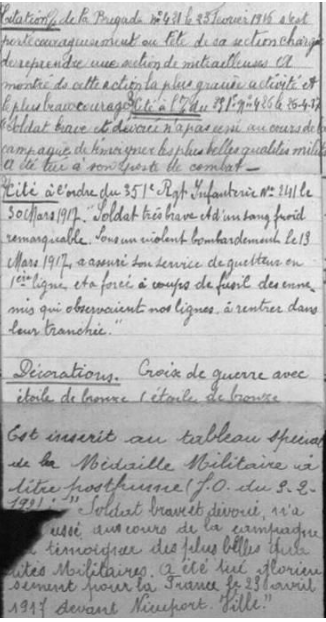 Citations de la Brigade nº 431 le 25 Février 1916 s'est
porté courageusement en tête de sa section chargée
de reprendre une section de mitrailleuses. A
montré ds cette action la plus grande activité et
le plus beau courage. Cité à l' du 351e nº 426 26-4-17
Soldat brave et dévoué n'a pas cessé au cours de la
campagne de témoigner les plus belles qualités milit
A été tué à son poste de combat_
Cité à l'ordre du 351e Rgt Infanterie No 241 le
30 Mars 1917. "Soldat très brave et d'un sang froid
remarquable. Sous un violent bombardement le 13
Mars 1917, a assuré son service de guetteur en
1ère ligne et a forcé à coups de fusil des enne-
mis qui observaient nos lignes à rentrer dans
leur tranchée."
Décorations. Croix de guerre avec
étoile de bronze 1 étoile de bronze
Est inscrit au tableau spécial
de la Médaille Militaire à
titre posthume (J.O. du 9-2-
"Soldat brave et dévoué, n'a
cessé au cours de la campagne
témoigner des plus belles qua
lités Militaires. A été tué glorieu
sement pour la France le 23 avril
1917 devant Nieuport Ville."